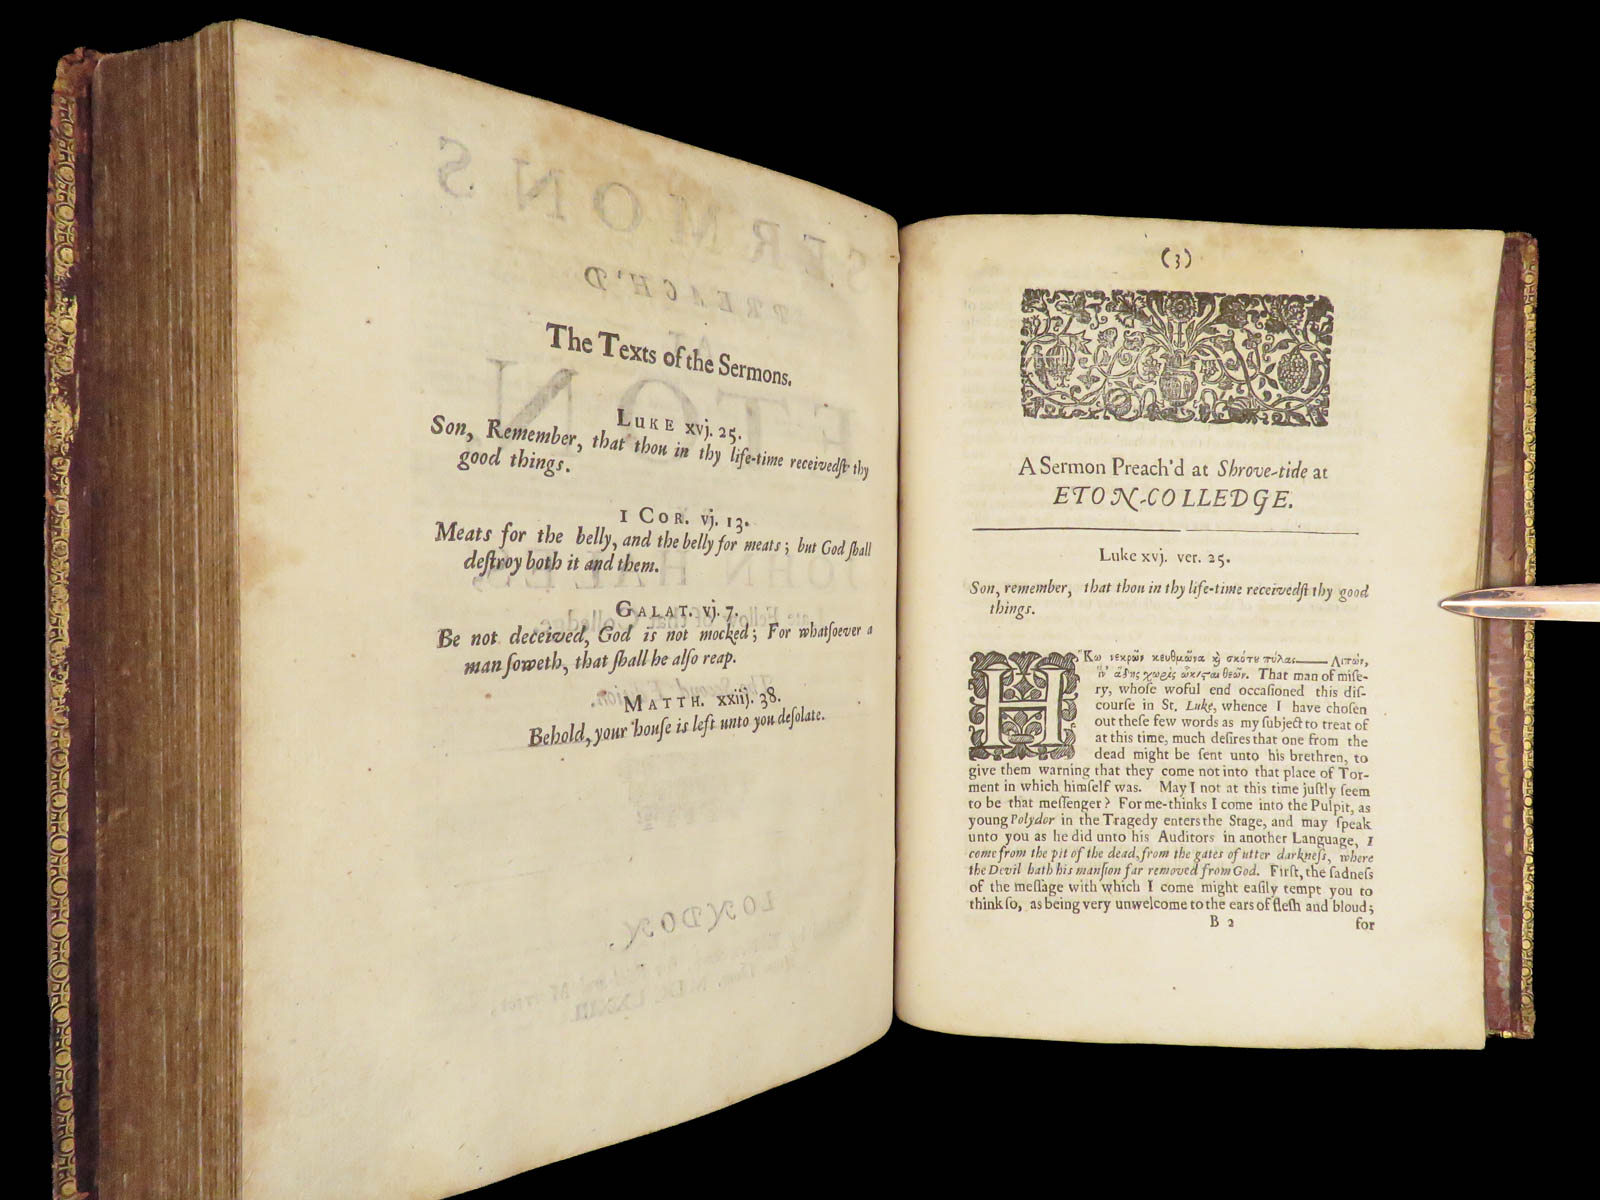 The Texts of the Sermons.
Luke xvj. 25.
Son, Remember, that thou in thy life-time receivedſt thy
good things.
1 Cor. vj. 13.
Meats for the belly, and the belly for meats; but God ſhall
deſtroy both it and them.
Galat. vj. 7.
Be not deceived, God is not mocked; For whatſoever a
man ſoweth, that ſhall he alſo reap.
Matth. xxiij. 38.
Behold, your houſe is left unto you deſolate.
(3)
A Sermon Preach'd at Shrove-tide at
ETON-COLLEDGE.
Luke xvj. ver. 25.
Son, remember, that thou in thy life-time receivedſt thy good
things.
Ἥκω νεκρῶν κευθμῶνα ϗ σκότȣ πύλας—— Λιπών,
ἵν' ᾅδης χωρὶς ᾤκισται θεῶν. That man of miſe-
ry, whoſe woful end occaſioned this diſ-
courſe in St. Luke, whence I have choſen
out theſe few words as my ſubject to treat of
at this time, much deſires that one from the
dead might be ſent unto his brethren, to
give them warning that they come not into that place of Tor-
ment in which himſelf was. May I not at this time juſtly ſeem
to be that meſſenger? For me-thinks I come into the Pulpit, as
young Polydor in the Tragedy enters the Stage, and may ſpeak
unto you as he did unto his Auditors in another Language, I
come from the pit of the dead, from the gates of utter darkneſs, where
the Devil hath his manſion far removed from God. Firſt, the ſadneſs
of the meſſage with which I come might eaſily tempt you to
think ſo, as being very unwelcome to the ears of fleſh and bloud;
B 2
for